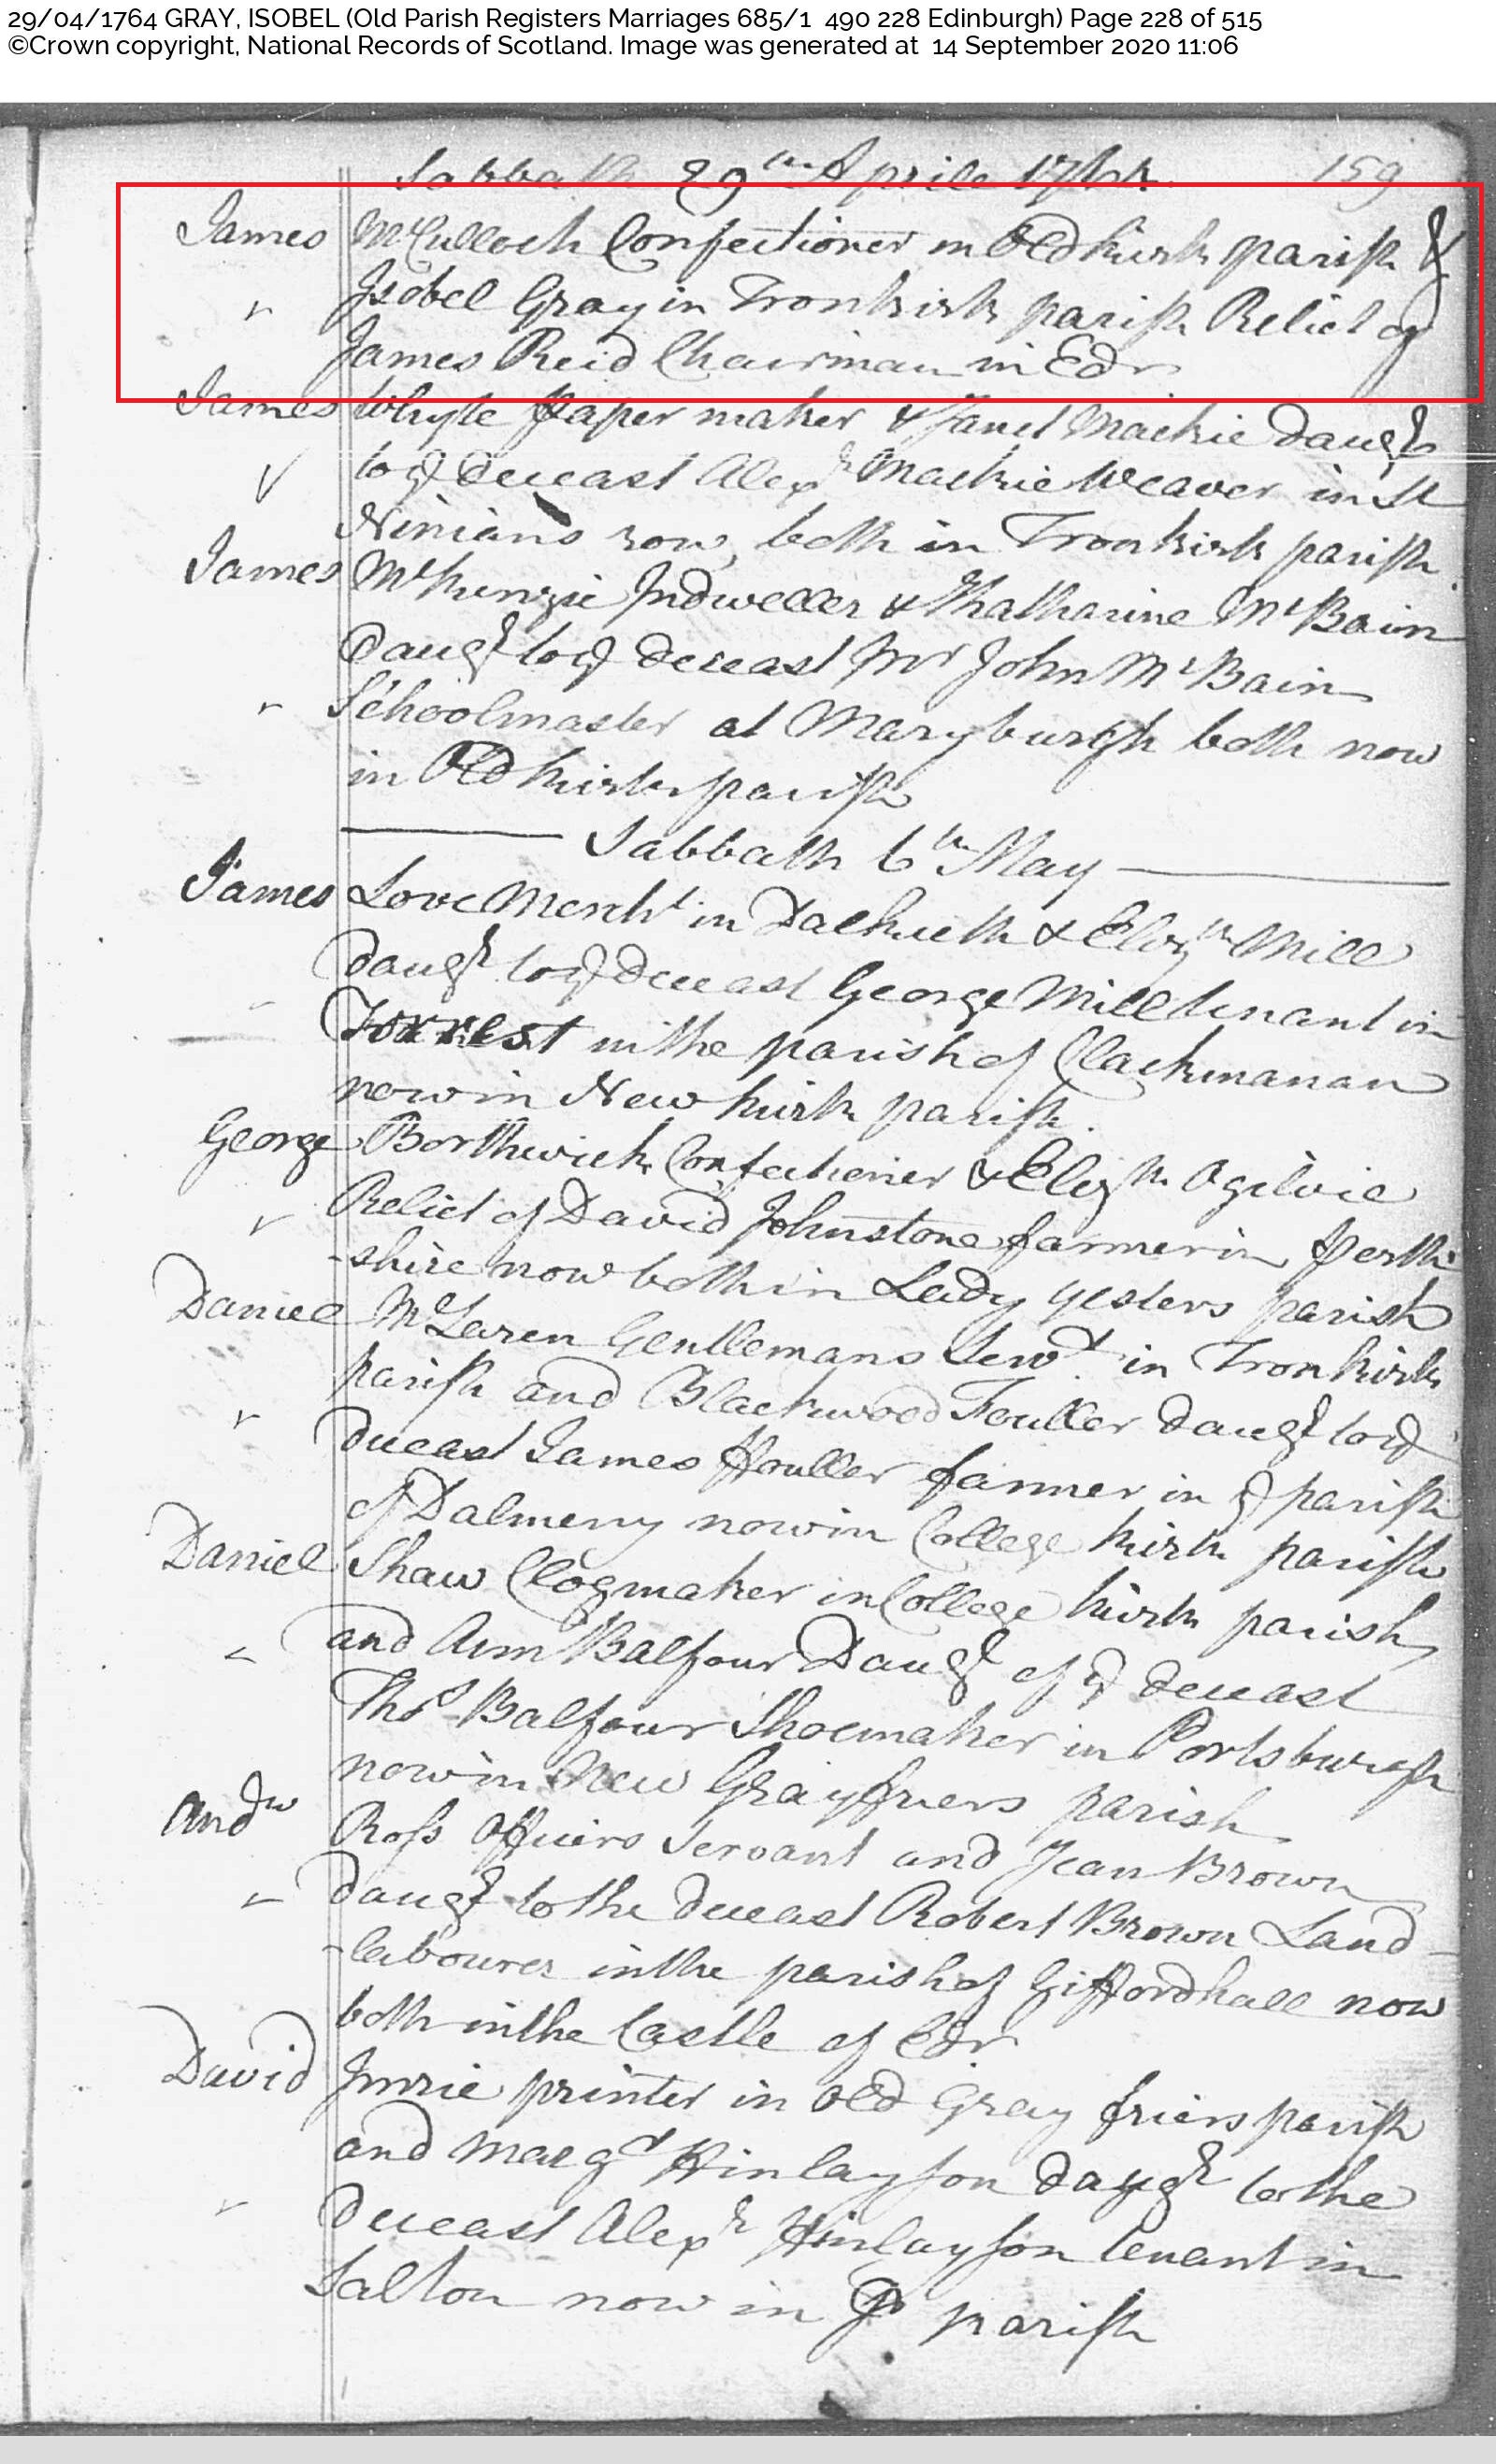 29/04/1764 GRAY, ISOBEL (Old Parish Registers Marriages 685/1 490 228 Edinburgh) Page 228 of 515
©Crown copyright, National Records of Scotland. Image was generated at 14 September 2020 11:06
Sabbath 29th Aprile 1764 159
James McCulloch Confectioner in Old kirk parish &
Isobel Gray in Tronkirk parish Relict of
James Reid Chairman in Edr
James Whyte paper maker & Janet Mackie Daugr
to ye Deceast Alexr Mackie Weaver in St
Ninians row, both in Tronkirk parish
James McKenzie Indweller & Katharine McBain
Daugr to ye deceast Mr John McBain
Schoolmaster at Maryburgh both now
in Old kirk parish
Sabbath 6th May
James Love Mercht in Dalkieth & Elizth Mill
Daugr to ye Deceast George Mill tenant in
Forrest in the parish of Clackmanan
now in New kirk parish.
George Borthwick Confectioner & Elizth Ogilvie
Relict of David Johnstone farmer in perth
-shire now both in Lady yesters parish
Daniel McLaren Gentlemans Servt in Tronkirk
parish and Blackwood Fouller Daugr to ye
Deceast James ffouller farmer in ye parish
of Dalmeny now in College kirk parish
Daniel Shaw Clogmaker in College kirk parish
and Ann Balfour Daugr of ye deceast
Thos Balfour Shoemaker in Portsburgh
now in New Grayfriers parish
Andw Ross Officers Servant and Jean Brown
Daugr to the Deceast Robert Brown Land-
-labourer in the parish of Giffordhall now
both in the Castle of Edr
David Imrie printer in Old Gray friers parish
and Margt ffinlayson Daugr to the
Deceast Alexr ffinlayson tenant in
Salton now in sd parish